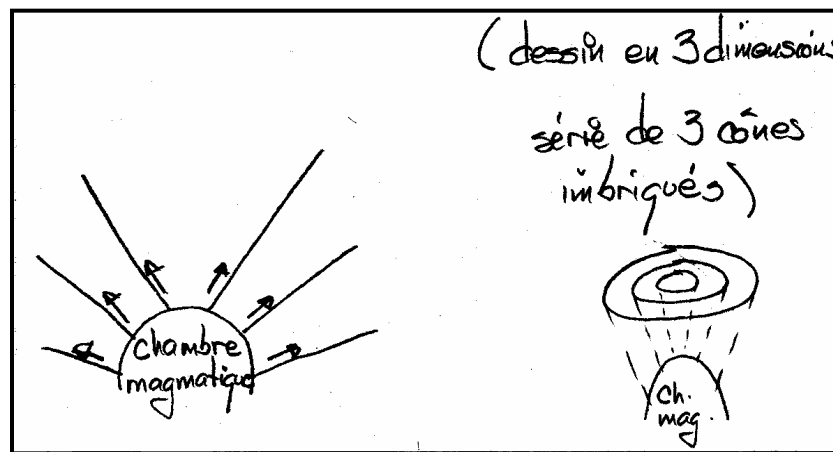 (dessin en 3 dimensions
série de 3 cônes
imbriqués)
chambre
magmatique
ch.
mag.